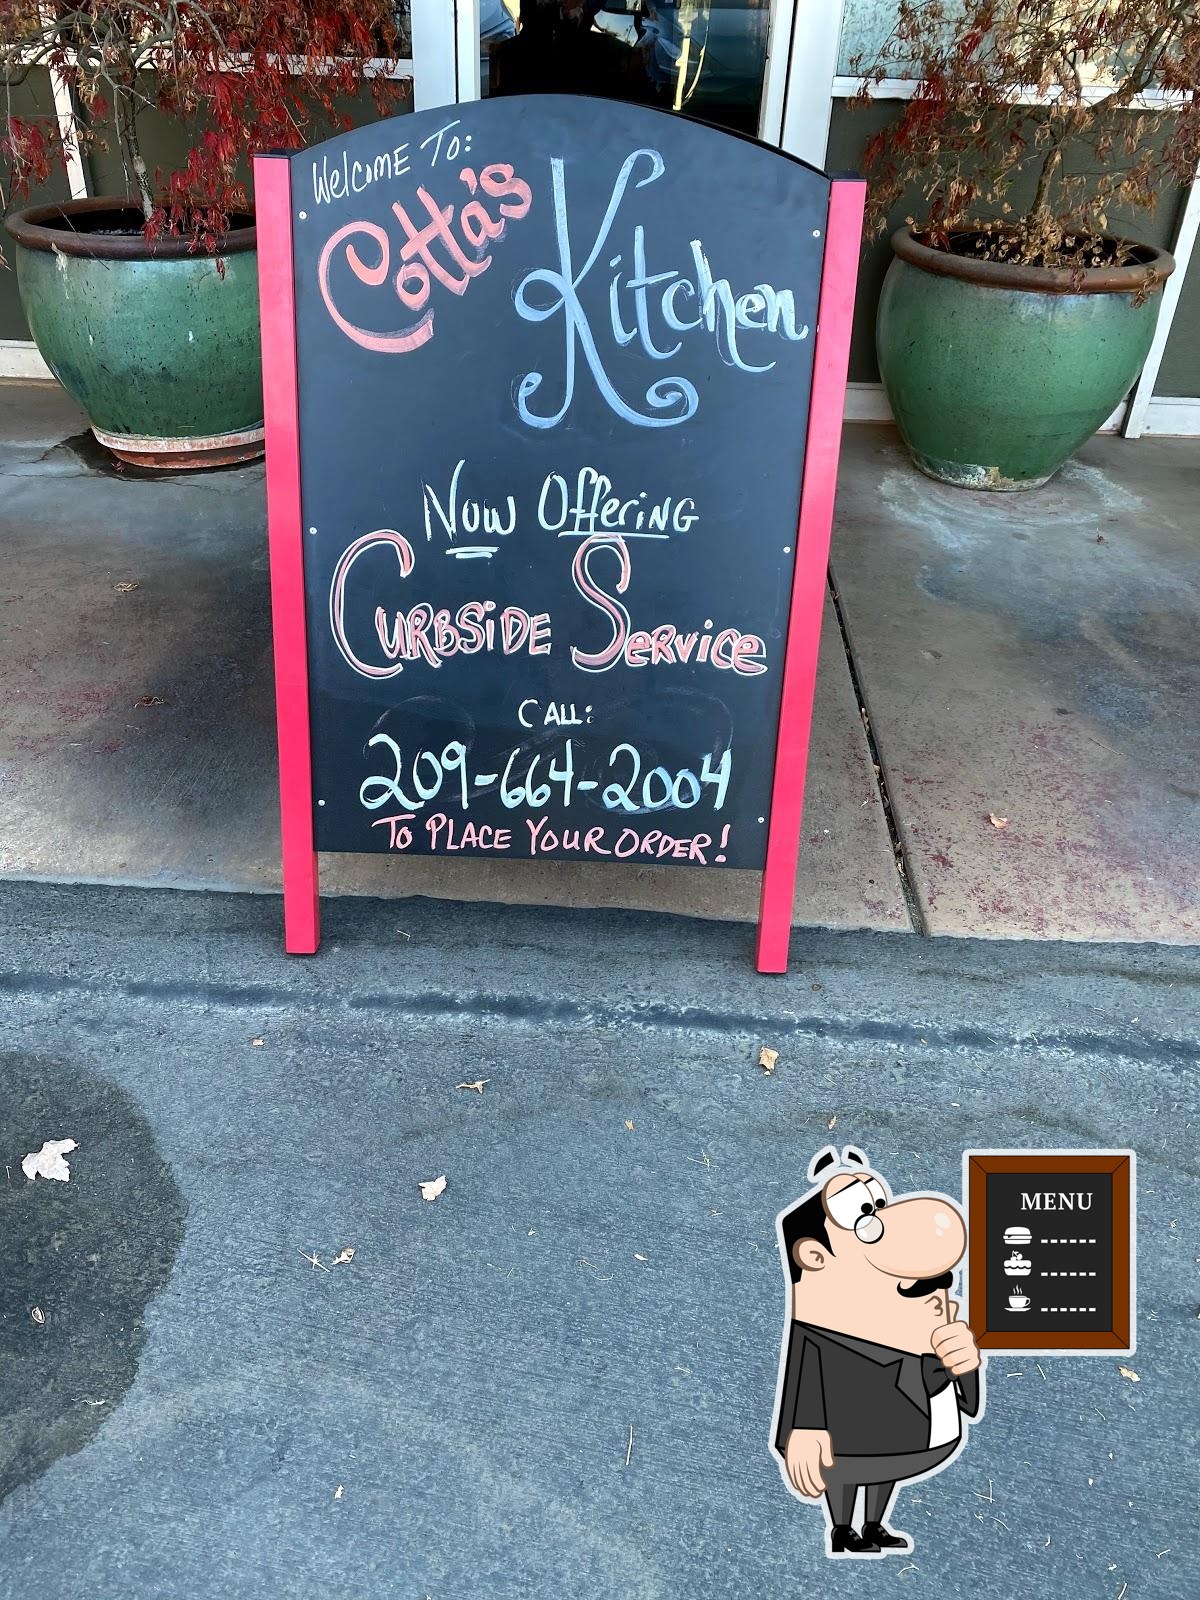 Welcome To:
Cotta's
Kitchen
Now Offering
Curbside Service
CALL:
209-664-2004
To PLACE YOUR ORDER!
MENU